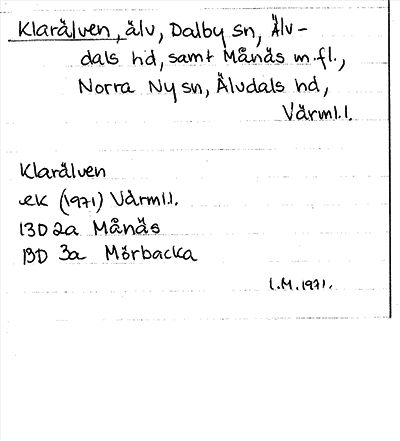 Klarälven, älv, Dalby sn, Älv-
dals hd, samt Månäs m.fl.,
Norra Ny sn, Älvdals hd,
Värml.l.
Klarälven
ek (1971) Värml.l.
13D 2a Månäs
13D 3a Mörbacka
L.M. 1971.